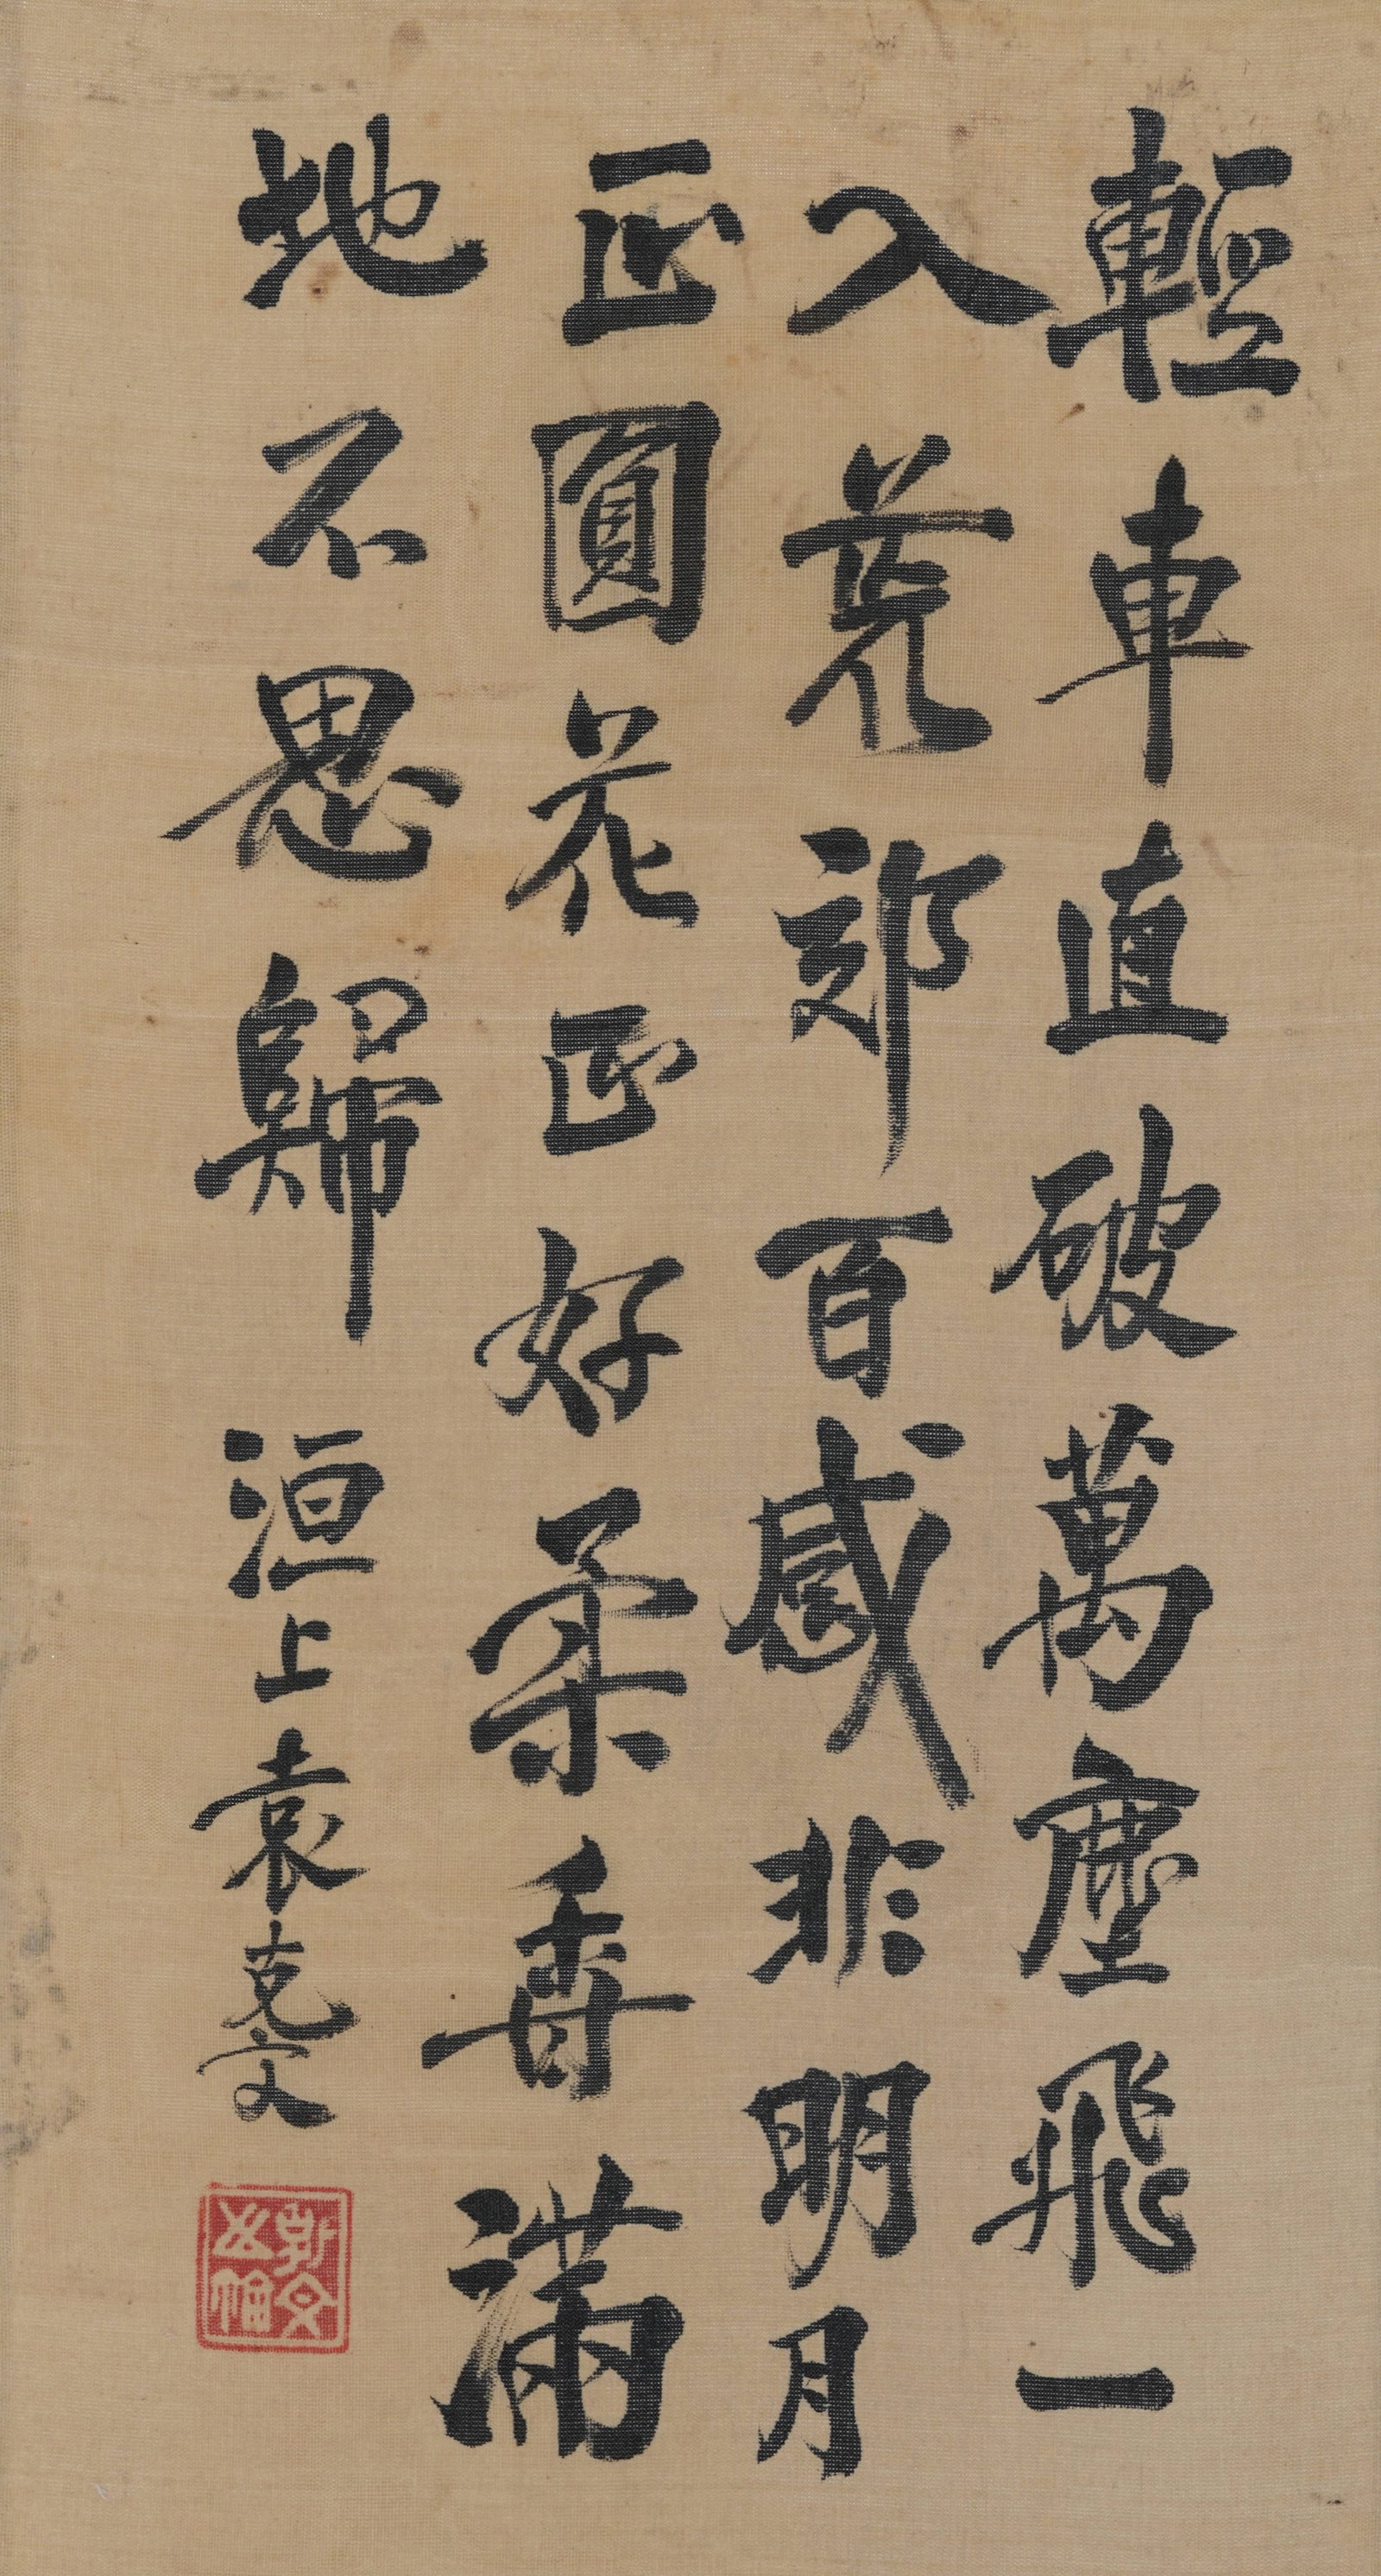 輕車直破萬塵飛一
入荒郊百感非明月
正圓花正好柔香滿
地不思歸 洹上袁克文